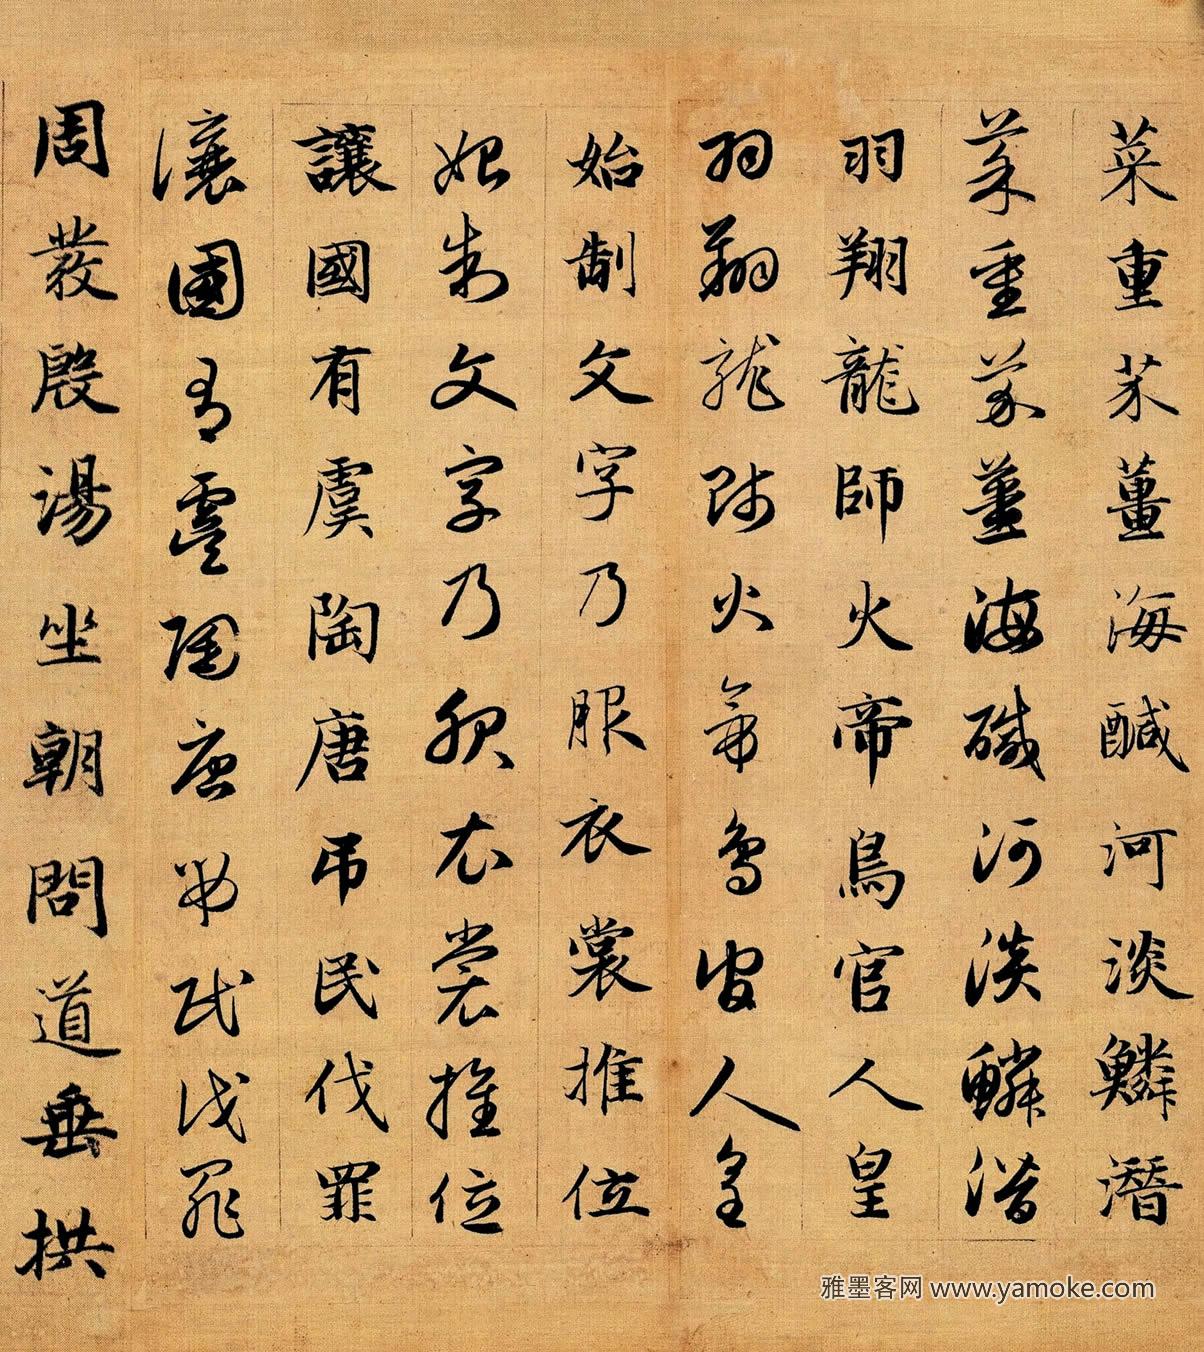 菜重芥薑海醎河淡鱗潛
菜重芥薑海醎河淡鱗潛
羽翔龍師火帝鳥官人皇
羽翔龍師火帝鳥官人皇
始制文字乃服衣裳推位
始制文字乃服衣裳推位
讓國有虞陶唐吊民伐罪
讓國有虞陶唐弔民伐罪
周發殷湯坐朝問道垂拱
雅墨客网 www.yamoke.com